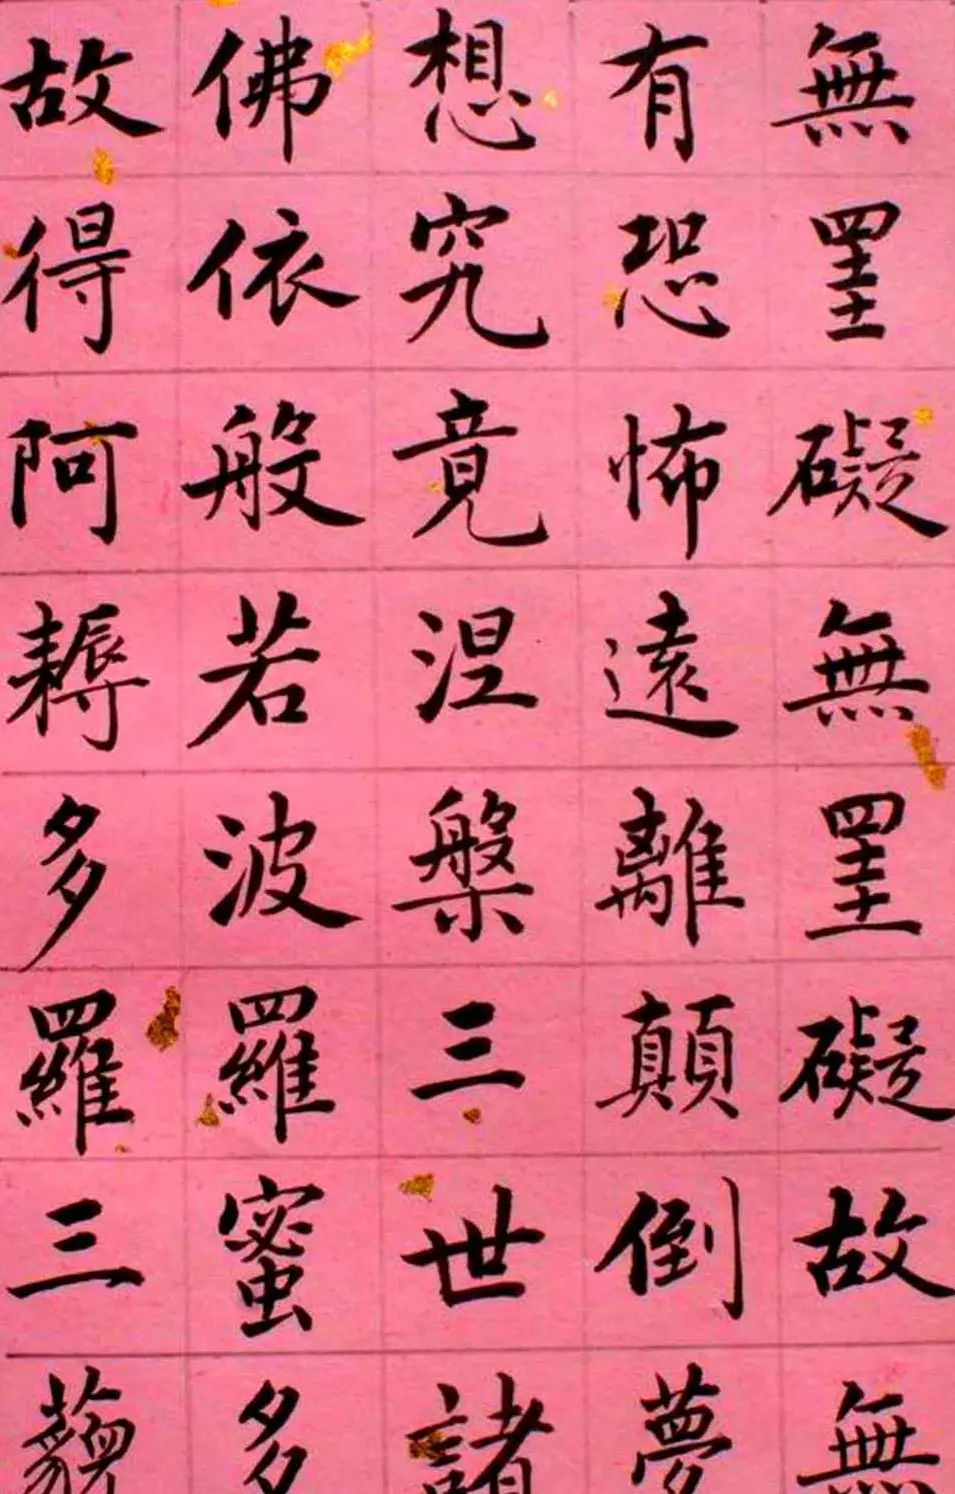 無罣礙無罣礙故無
有恐怖遠離顛倒夢
想究竟涅槃三世諸
佛依般若波羅蜜多
故得阿耨多羅三藐